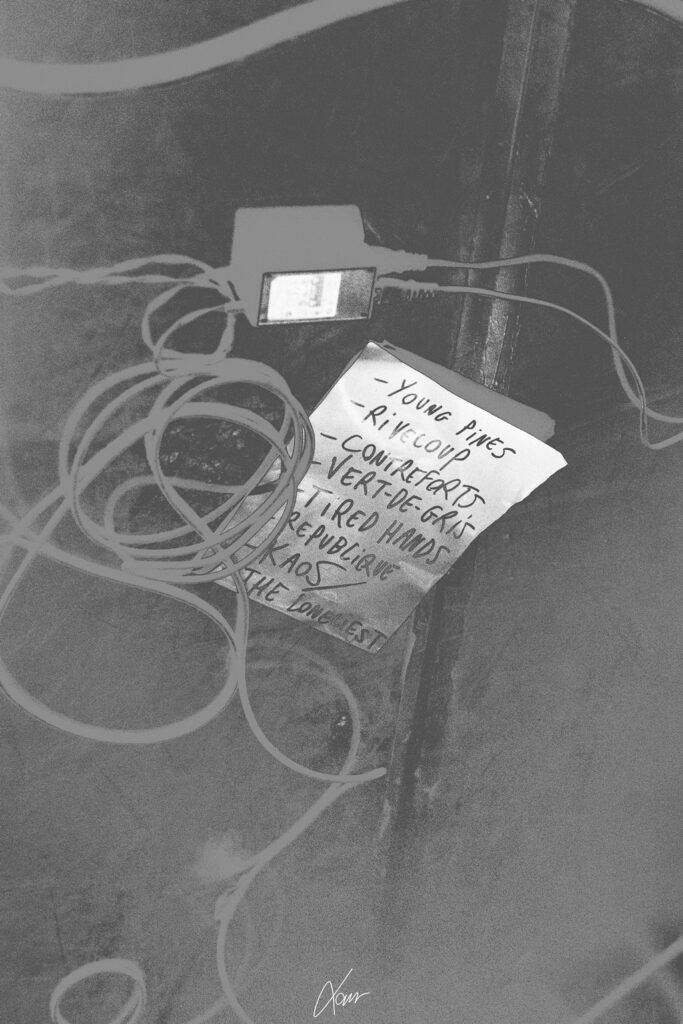 - YOUNG PINES
- RIVECOUP
- CONTREFORTS
- VERT-DE-GRIS
- TIRED HANDS
REPUBLIQUE
- KAOS
THE LONELIEST